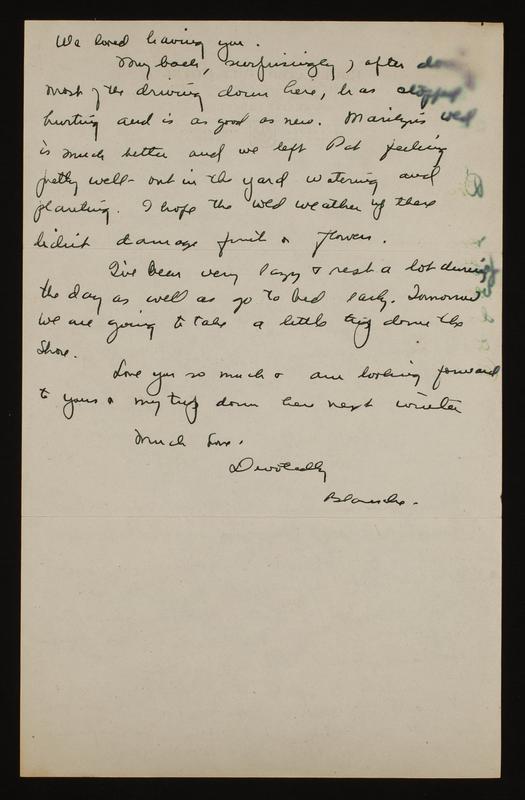 We loved having you.
My back, surprisingly, after doing
most of the driving down here, has stopped
hurting and is as good as new. Marilyn's
is much better and we left Pat feeling
pretty well - out in the yard watering and
planting. I hope the weather up there
didn't damage fruit or flowers.
I've been very lazy & rest a lot during
the day as well as go to bed early. Tomorrow
we are going to take a little trip down the
shore.
Love you so much & am looking forward
to yours & my trip down here next winter
Much love.
Devotedly
Blanche.